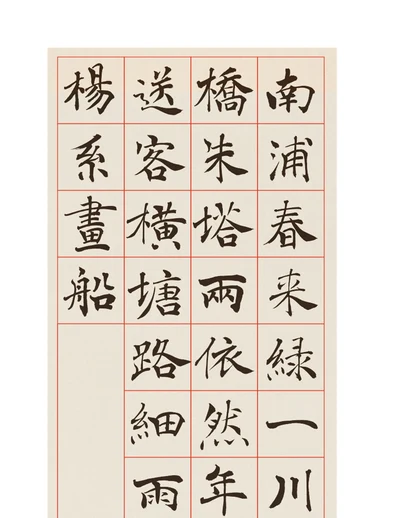 南浦春来綠一川
橋朱塔兩依然年
送客橫塘路細雨
楊系畫船